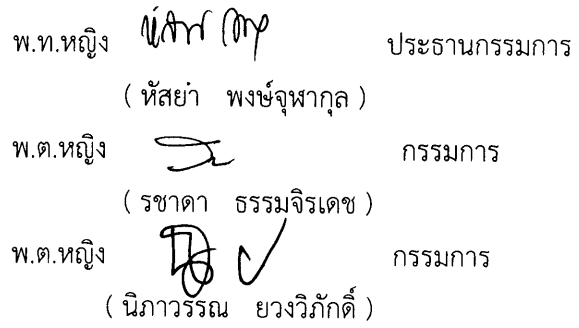 พ.ท.หญิง ประธานกรรมการ
( หัสยา พงษ์จุฬากุล )
พ.ต.หญิง กรรมการ
( รชาดา ธรรมจิรเดช )
พ.ต.หญิง กรรมการ
( นิภาวรรณ ยวงวิภักดิ์ )